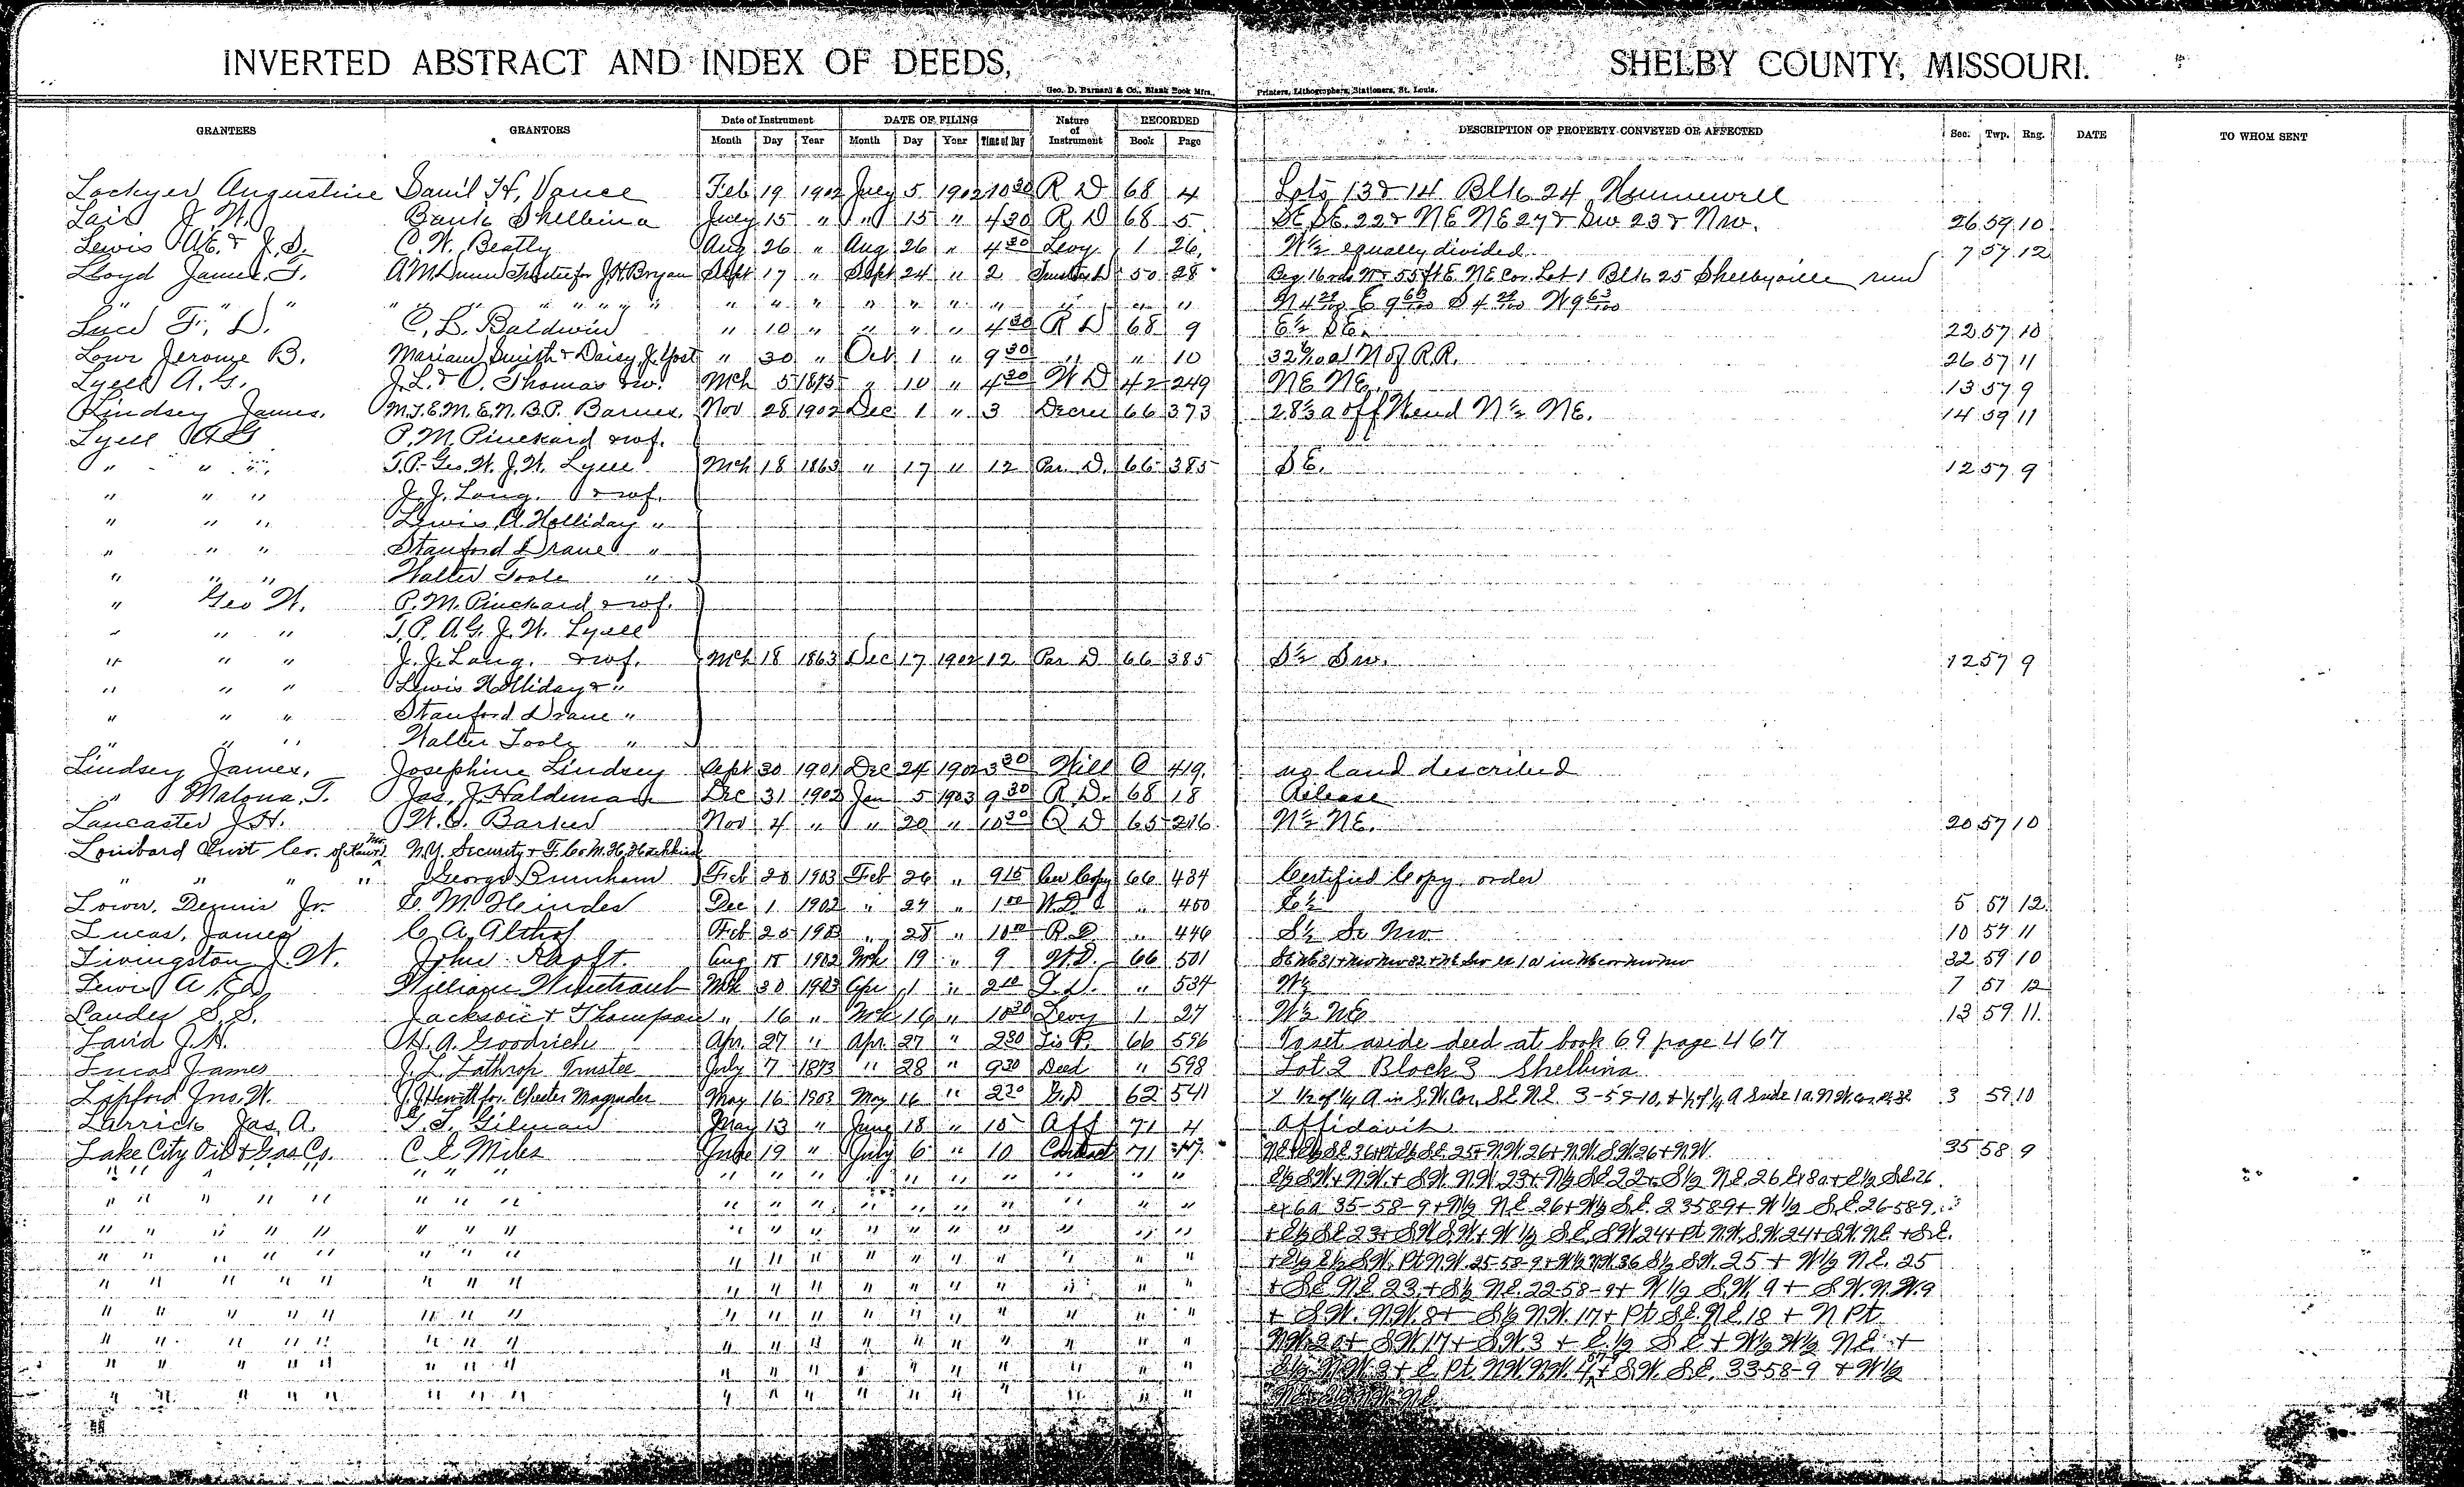 INVERTED ABSTRACT AND INDEX OF DEEDS, SHELBY COUNTY, MISSOURI.
Geo. D. Barnard & Co., Blank Book Mfrs., Printers, Lithographers, Stationers, St. Louis.
GRANTEES GRANTORS Date of Instrument DATE OF FILING Nature of Instrument RECORDED DESCRIPTION OF PROPERTY CONVEYED OR AFFECTED Sec. Twp. Rng. DATE TO WHOM SENT
Month Day Year Month Day Year Time of Day Book Page
Lockyer Augustine Danil H, Vance Feb 19 1902 July 5 1902 10 30 R D 68 4 Lots 13 & 14 Blk 24 Hunnewell
Lair J. W. Bank Shelbina July 15 " " 15 " 4 30 R D 68 5 SE SE 22 & NE NE 27 & Sw 23 & Nw. 26 59 10
Lewis & J. S. C. W. Beatly Aug 26 " Aug 26 " 4 30 Levy 1 26 W½ equally divided 7 57 12
Lloyd James T. A M Dunn Trustee for J H Bryan Sept 17 " Sept 24 " 2 50 28 Beg 16 rds N & 55 ft E NE Cor. Lot 1 Blk 25 Shelbyville run
" " " " " " " " " " " " " " " "
Luce F. D. C. L. Baldwin " 10 " " " " 4 30 R D 68 9 E½ SE. 22 57 10
Lowe Jerome B. Mariam Smith & Daisy J. Yost " 30 " Oct 1 " 9 30 " " 10 N of R.R. 26 57 11
Lyell A. G. J. L. & O. Thomas & w. Mch 5 1875 " 10 " 4 30 W D 42 249 NE NE. 13 57 9
Lindsey James, M. J. E. M. E. N. B. P. Barnes, Nov 28 1902 Dec 1 " 3 Decree 66 373 28⅓ a off W end N½ NE. 14 59 11
Lyell A G P. M. Pinckard & wf.
" " " T. P. Geo. W. J. W. Lyell Mch 18 1863 " 17 " 12 Par. D. 66 385 SE. 12 57 9
" " " J. J. Lang. & wf.
" " " Lewis A. Holliday "
" " " Stanford Drane "
" " " Walter Toole "
" Geo W. P. M. Pinckard & wf.
" " " T. P. A. G. J. W. Lyell
" " " J. J. Lang. & wf. Mch 18 1863 Dec 17 1902 12 Par D 66 385 S½ Sw. 12 57 9
" " " Lewis Holliday & "
" " " Stanford Drane "
" " " Walter Toole "
Lindsey James, Josephine Lindsey Sept 30 1901 Dec 24 1902 3 30 Will O 419. no land described
" Malona, T. Jas. J. Haldeman Dec 31 1902 Jan 5 1903 9 30 R D. 68 18 Release
Lancaster J. H. W. O. Barker Nov 4 " " 20 " 10 30 Q D 65 216 N½ NE. 20 57 10
Lombard Invt Co. of N.Y. Security & T. Co
" " " " George Burnham Feb 20 1903 Feb 26 " 9 15 Cer Copy 66 434 Certified Copy order
Lower, Dennis Jr. C. M. Heindes Dec 1 1902 " 27 " 1 00 W D " 450 E½ 5 57 12
Lucas, James C. A. Althof Feb 25 1903 " 28 " 10 R. D " 446 S½ Se Nw 10 57 11
Livingston J. W. John Aug 15 1902 Mch 19 " 9 W.D. 66 501 32 59 10
Lewis A Ed William Wintraub Mch 30 1903 Apr 1 " 2 " 534 W½ 7 57 12
Landes S. S. Jackson & Thompson " 16 " Mch 16 " 10 30 Levy 1 27 W½ NE 13 59 11.
Laird J. H. H. A. Goodrich Apr. 27 " Apr. 27 " 2 30 Lis P. 66 596 To set aside deed at book 69 page 467
Lucas James J. L. Lathrop Trustee July 7 1873 " 28 " 9 30 Deed " 598 Lot 2 Block 3 Shelbina
Jno. W. J. J. Hewitt for. Chester Magruder May 16 1903 May 16 " 2 30 62 541 ½ of ¼ A in S.W. Cor. S.E. N.E. 3-59-10, 3 59 10
Larrick Jas. A. T. L. Gilman May 13 " June 18 " 10 Aff 71 4 Affidavit
Lake City Oil & Gas Co. C. E. Miles June 19 " July 6 " 10 Contract 71 35 58 9
" " " " " " " " " " " " " " " " " E½ S.W + N.W. + S.W. N.W. 23 + N½ S.E. 22 + S½ N.E. 26 Ex 8a + E½ S.E. 26
" " " " " " " " " " " " " " " " " ex 6a 35-58-9 + N½ N.E. 26 + W½ S.E. 23 58 9 + W ½ S.E. 26 58 9
" " " " " " " " " " " " " " " " " + E½ S.E. 23 + S.W. S.W. + W ½ S.E. S.W. 24 + Pt N.W. S.W. 24 + S.W. N.E. + S.E.
" " " " " " " " " " " " " " " " " + E½ E½ S.W. Pt N.W. 25-58-9 + W½ N.W. 36 S½ S.W. 25 + W½ N.E. 25
" " " " " " " " " " " " " " " " " + S.E. N.E. 23 + S½ N.E. 22-58-9 + W ½ S.W. 9 + S.W. N.W. 9
" " " " " " " " " " " " " " " " " + S.W. N.W. 8 + S½ N.W. 17 + Pt S.E. N.E. 18 + N Pt.
" " " " " " " " " " " " " " " " " N.W. 20 + S.W. 17 + S.W. 3 + E. ½ S.E. + W½ W½ N.E. +
" " " " " " " " " " " " " " " " " E½ N.W. 3 + E. Pt. N.W. N.W. 4 + S.W. S.E. 33-58-9 + W½
" " " " " " " " " " " " " " " " "